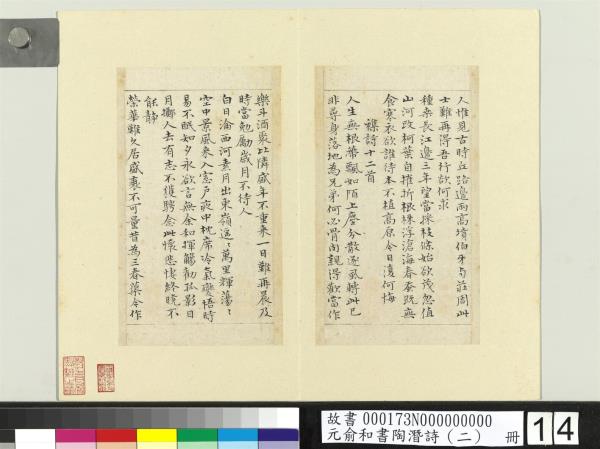 人惟見古時丘路邊兩高墳伯牙与莊周此
士難再得吾行欲何求
種桑長江邊三年望當採枝條始欲茂忽值
山河改柯葉自摧折根株浮滄海春蚕既無
食寒衣欲誰待本不植高原今日復何悔
襍詩十二首
人生無根蔕飄如陌上塵分散逐風轉此已
非身落地為兄弟何必骨肉親得歡當作
樂斗酒聚比隣盛年不重來一日難再晨及
時當勉勵歲月不待人
白日淪西河素月出東嶺遥〻萬里輝蕩〻
空中景風來入窓戶夜中枕席冷氣變悟時
易不眠知夕永欲言無余和揮觴勸孤影日
月擲人去有志不獲騁念此懷悲悽終曉不
能靜
榮華難久居盛衰不可量昔為三春蕖今作
故書000173N000000000
元俞和書陶潛詩(二) 冊
14